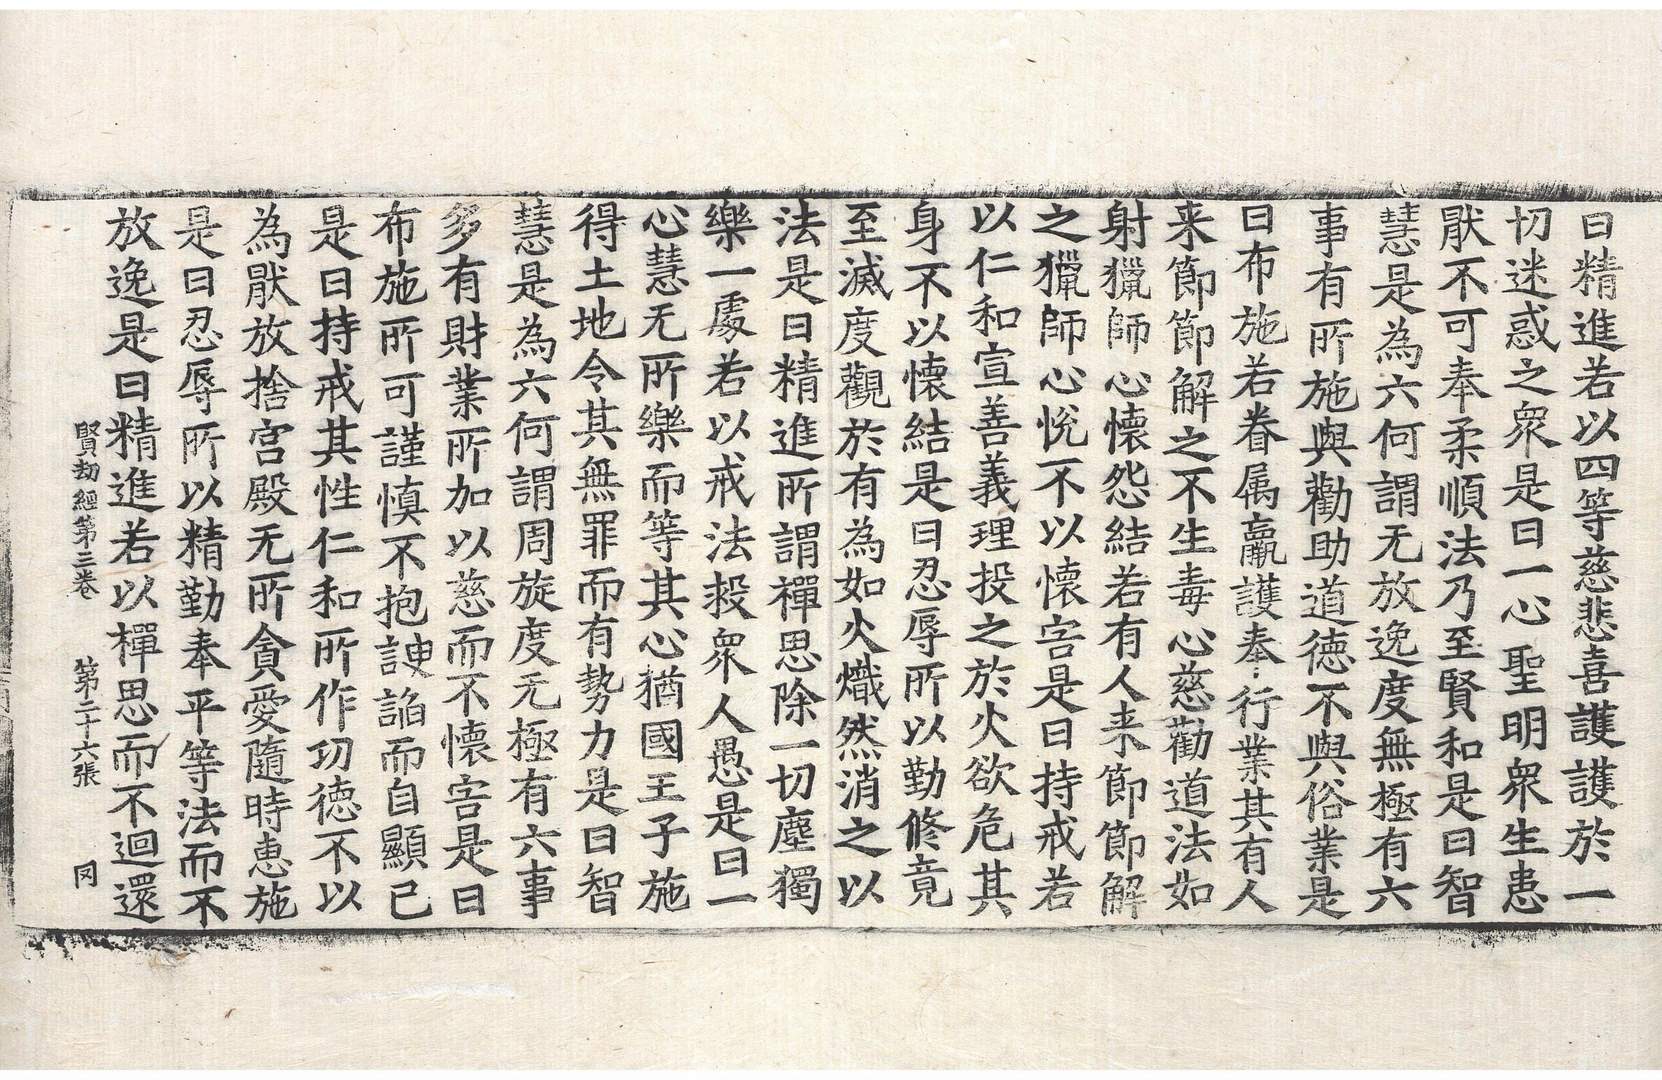 曰精進若以四等慈悲喜護護於一
切迷惑之衆是曰一心聖明衆生患
猒不可奉柔順法乃至賢和是曰智
慧是為六何謂无放逸度無極有六
事有所施與勸助道德不與俗業是
曰布施若眷属羸護奉行業其有人
来節節解之不生毒心慈勸道法如
射獵師心懷怨結若有人来節節解
之獵師心恱不以懷害是曰持戒若
以仁和宣善義理投之於火欲危其
身不以懷結是曰忍辱所以勤修竟
至滅度觀於有為如火熾然消之以
法是曰精進所謂禪思除一切塵獨
樂一處若以戒法投衆人愚是曰一
心慧无所樂而等其心猶國王子施
得土地令其無罪而有勢力是曰智
慧是為六何謂周旋度无極有六事
多有財業所加以慈而不懷害是曰
布施所可謹慎不抱諛諂而自顯己
是曰持戒其性仁和所作功德不以
為猒放捨宫殿无所貪愛隨時恵施
是曰忍辱所以精勤奉平等法而不
放逸是曰精進若以禪思而不迴還
賢劫經第三卷 第二十六張 冈